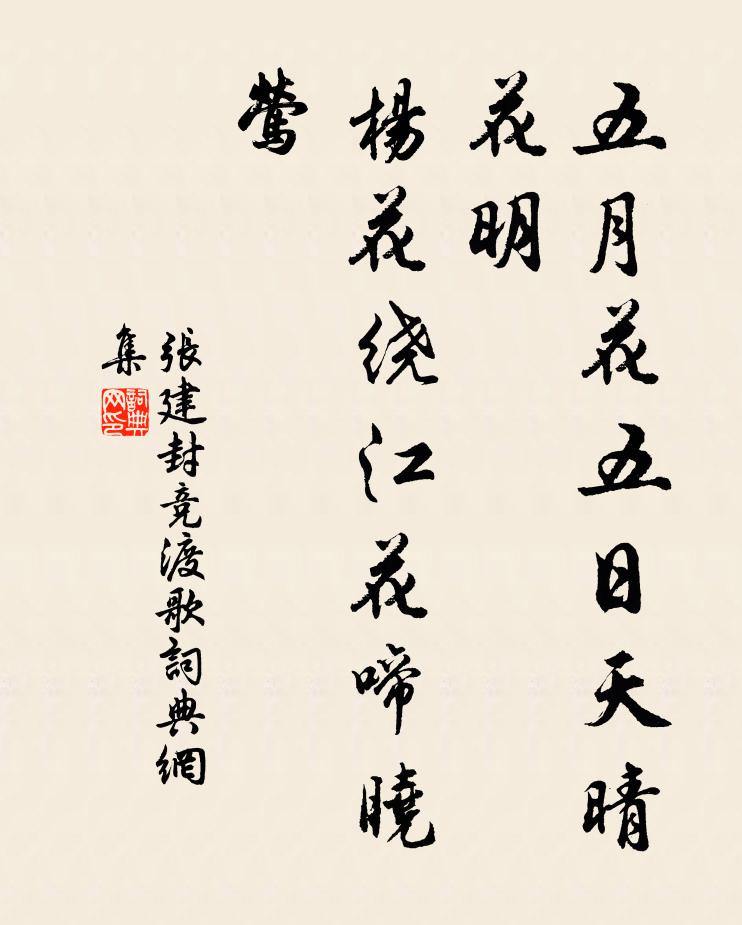 五月花五日天晴
花明
楊花绕江花啼曉
鶯
張建封竞渡歌詞典網
集
詞典
网印